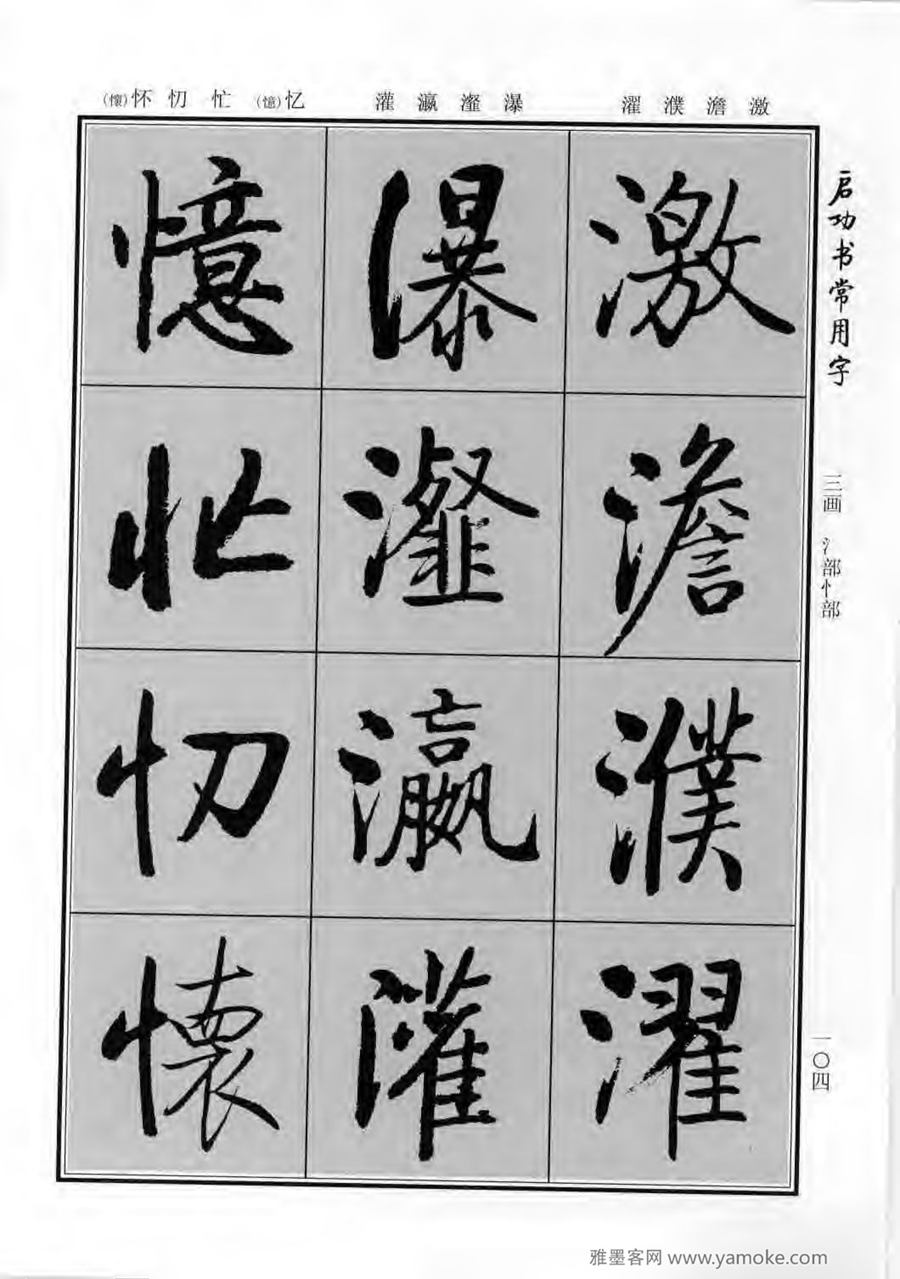 (懷)怀 忉 忙 (憶)忆 灌 瀛 瀣 瀑 濯 濮 澹 激
启功书常用字
三画 氵部忄部
一〇四
激 澹 濮 濯
瀑 瀣 瀛 灌
憶 忙 忉 懷
雅墨客网 www.yamoke.com